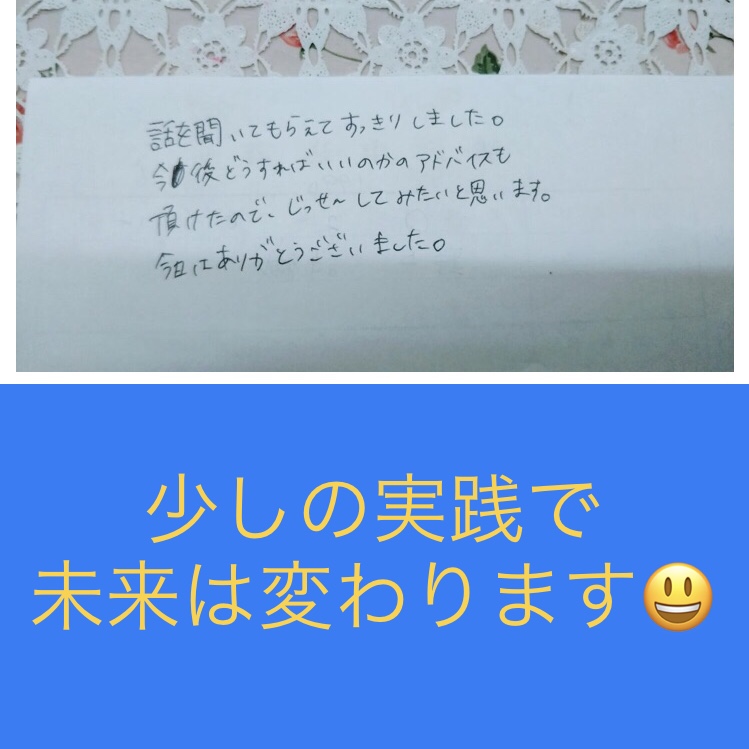 話を聞いてもらえてすっきりしました。
今後どうすればいいのかのアドバイスも
頂けたので、じっせんしてみたいと思います。
今日はありがとうございました。
少しの実践で
未来は変わります😃